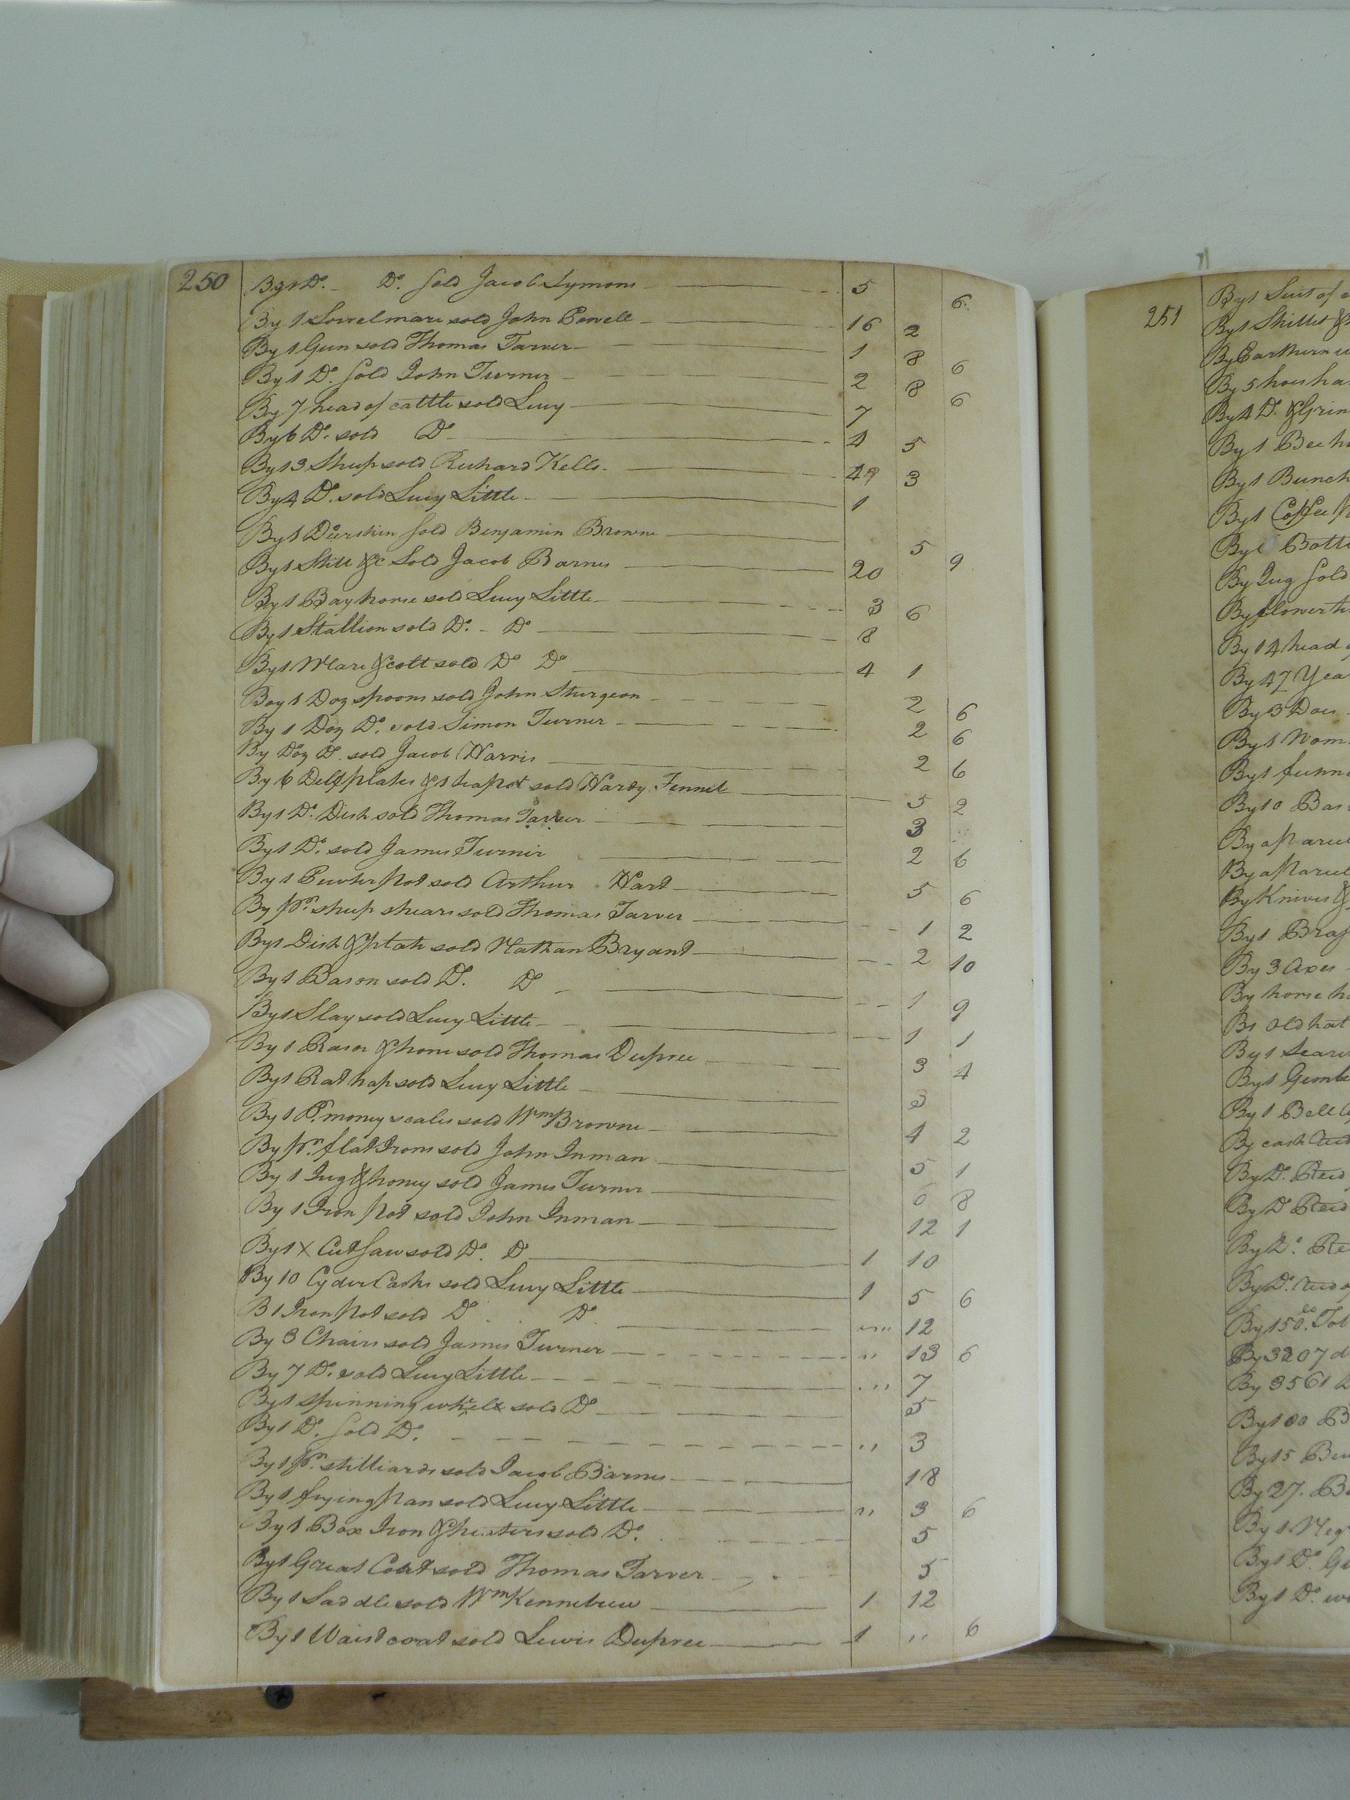 250 By 1 Do. Do. sold Jacob Symons 5 6
By 1 Sorrel mare sold John Powell 16 2
By 1 Gun sold Thomas Tarver 1 8 6
By 1 Do. sold John Turner 2 8 6
By 7 head of cattle sold Lucy 7
By 6 Do. sold Do 4 5
By 13 Sheep sold Richard Kello. 4 3
By 4 Do. sold Lucy Little 1
By 1 Deerskin sold Benjamin Browne 5
By 1 Still &c Sold Jacob Barnes 20 9
By 1 Bay horse sold Lucy Little 3 6
By 1 Stallion sold Do. Do 8
By 1 Mare & colt sold Do Do 4 1
Boy 1 Doz spoons sold John Sturgeon 2 6
By 1 Doz Do. sold Simon Turner 2 6
By Doz Do. sold Jacob Harris 2 6
By 6 Delf plates & 1 teapot sold Hardy Fennel 5 2
By 1 Do. Dish sold Thomas Tarver 3
By 1 Do. sold James Turner 2 6
By 1 Pewter pot sold Arthur Hart 5 6
By pr. sheep shears sold Thomas Tarver 1 2
By 1 Dish & plate sold Nathan Bryant 2 10
By 1 Bason sold Do. Do 1 9
By 1 Slay sold Lucy Little 1 1
By 1 Rasor & hone sold Thomas Dupree 3 4
By 1 Rat trap sold Lucy Little 3
By 1 Pr. money scales sold Wm Browne 4 2
By pr. flat Irons sold John Inman 5 1
By 1 Jug & honey sold James Turner 6 8
By 1 Iron pot sold John Inman 12 1
By 1 X Cut saw sold Do. Do 1 10
By 10 Cyder Casks sold Lucy Little 1 5 6
B 1 Iron pot sold Do Do 12
By 3 Chairs sold James Turner " 13 6
By 7 Do. sold Lucy Little 7
By 1 spinning wheele sold Do 5
By 1 Do. sold Do. " 3
By 1 pr. stilliards sold Jacob Barnes 18
By 1 frying pan sold Lucy Little " 3 6
By 1 Box Iron & heaters sold Do. 5
By 1 Great Coat sold Thomas Tarver 5
By 1 Saddle sold Wm Kennebrew 1 12
By 1 Waistcoat sold Lewis Dupree 1 " 6
251 By 1 Suit of
By 1 Skillet &
By Earthern
By 5 hogs ha
By 4 Do. & Grin
By 1 Bee h
By 1 Bunch
By 1 Coffee
By Bott
By Jug sold
By flower
By 14 head
By 47 Yea
By 3 Do
By 1 Wom
By 1 funn
By 10 Bar
By a parcel
By a parcel
By Knives &
By 1 Bras
By 3 Axes
By horse h
B old hat
By 1
By 1 Gimb
By 1 Bell
By cash
By Do.
By Do
By Do.
By Do.
By 150 Tob
By 3207
By 3561
By 100 B
By 15
By 27. B
By 1 Neg
By 1 Do. G
By 1 Do.